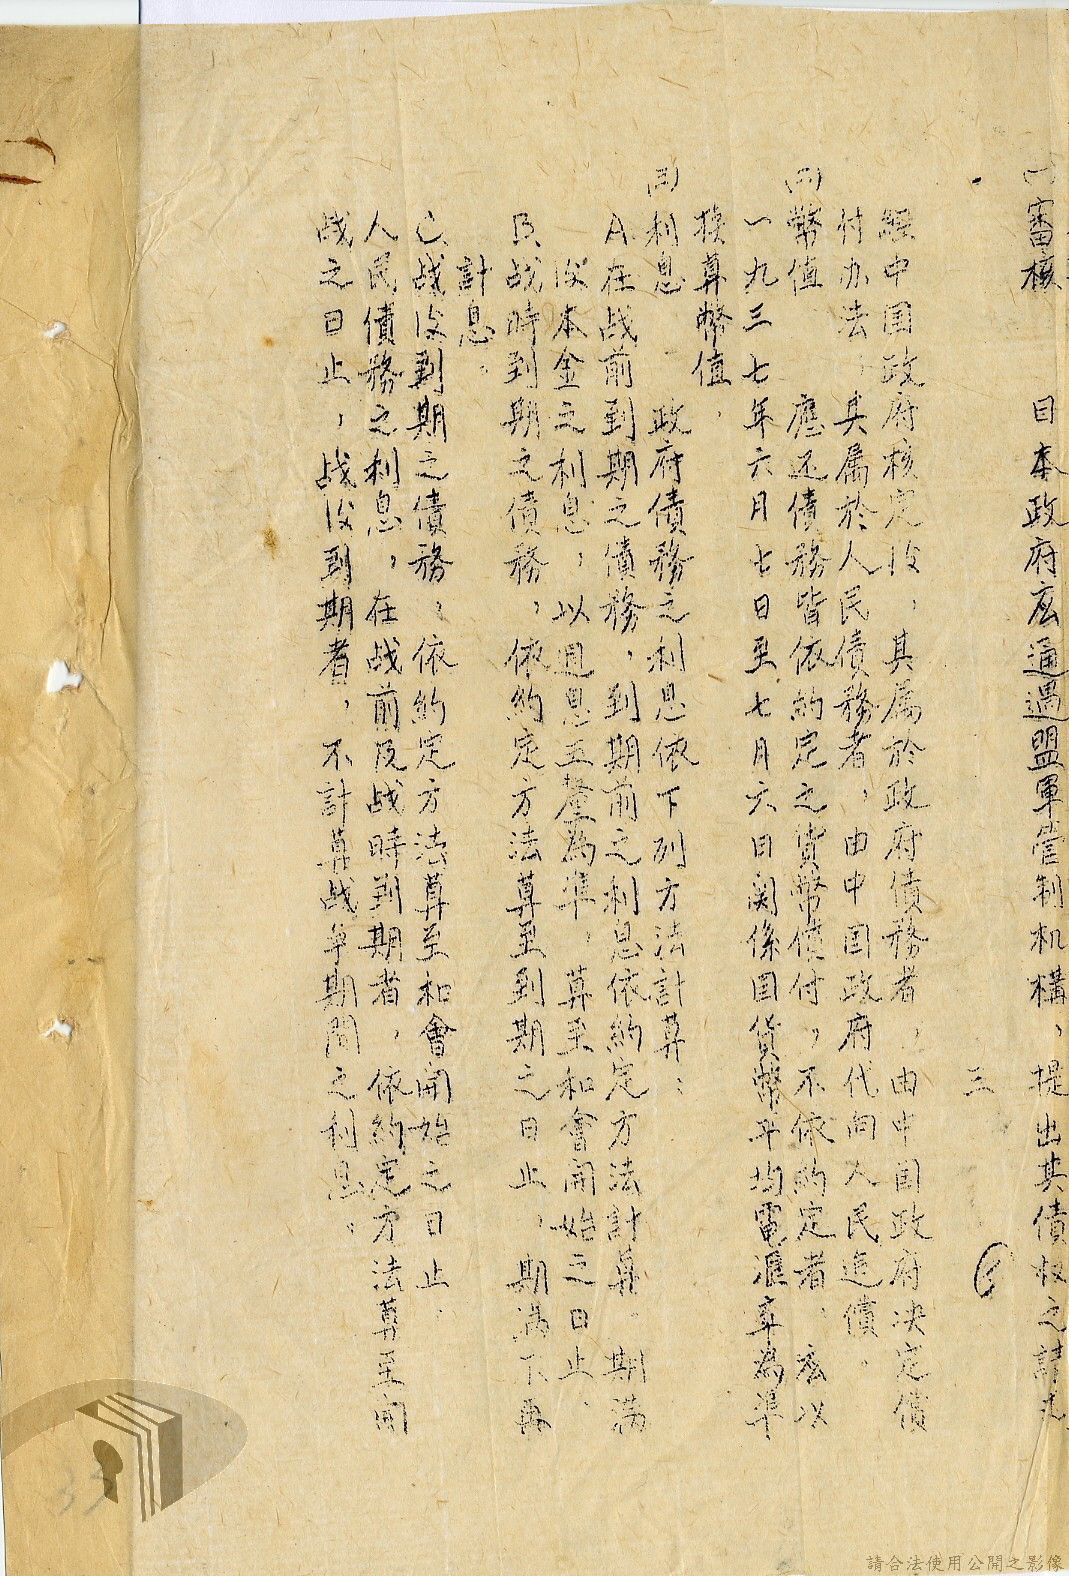 ㈠審核　日本政府應通過盟軍管制机構，提出其債权之請求
三
經中国政府核定后，其属於政府債務者，由中国政府決定償
付办法，其属於人民債務者，由中国政府代向人民追償。
㈡幣值　應还債務皆依約定之貨幣償付，不依約定者，應以
一九三七年六月七日至七月六日関係国貨幣平均電滙率為準
換算幣值，
㈢利息　政府債務之利息依下列方法計算：
A.在战前到期之債務，到期前之利息依約定方法計算。期満
后本金之利息，以週息五釐為準，算至和會開始之日止。
B.战時到期之債務，依約定方法算至到期之日止，期満不再
計息。
C.战后到期之債務，依約定方法算至和會開始之日止。
人民債務之利息，在战前及战時到期者，依約定方法算至開
战之日止，战后到期者，不計算战争期間之利息。
33
請合法使用公開之影像